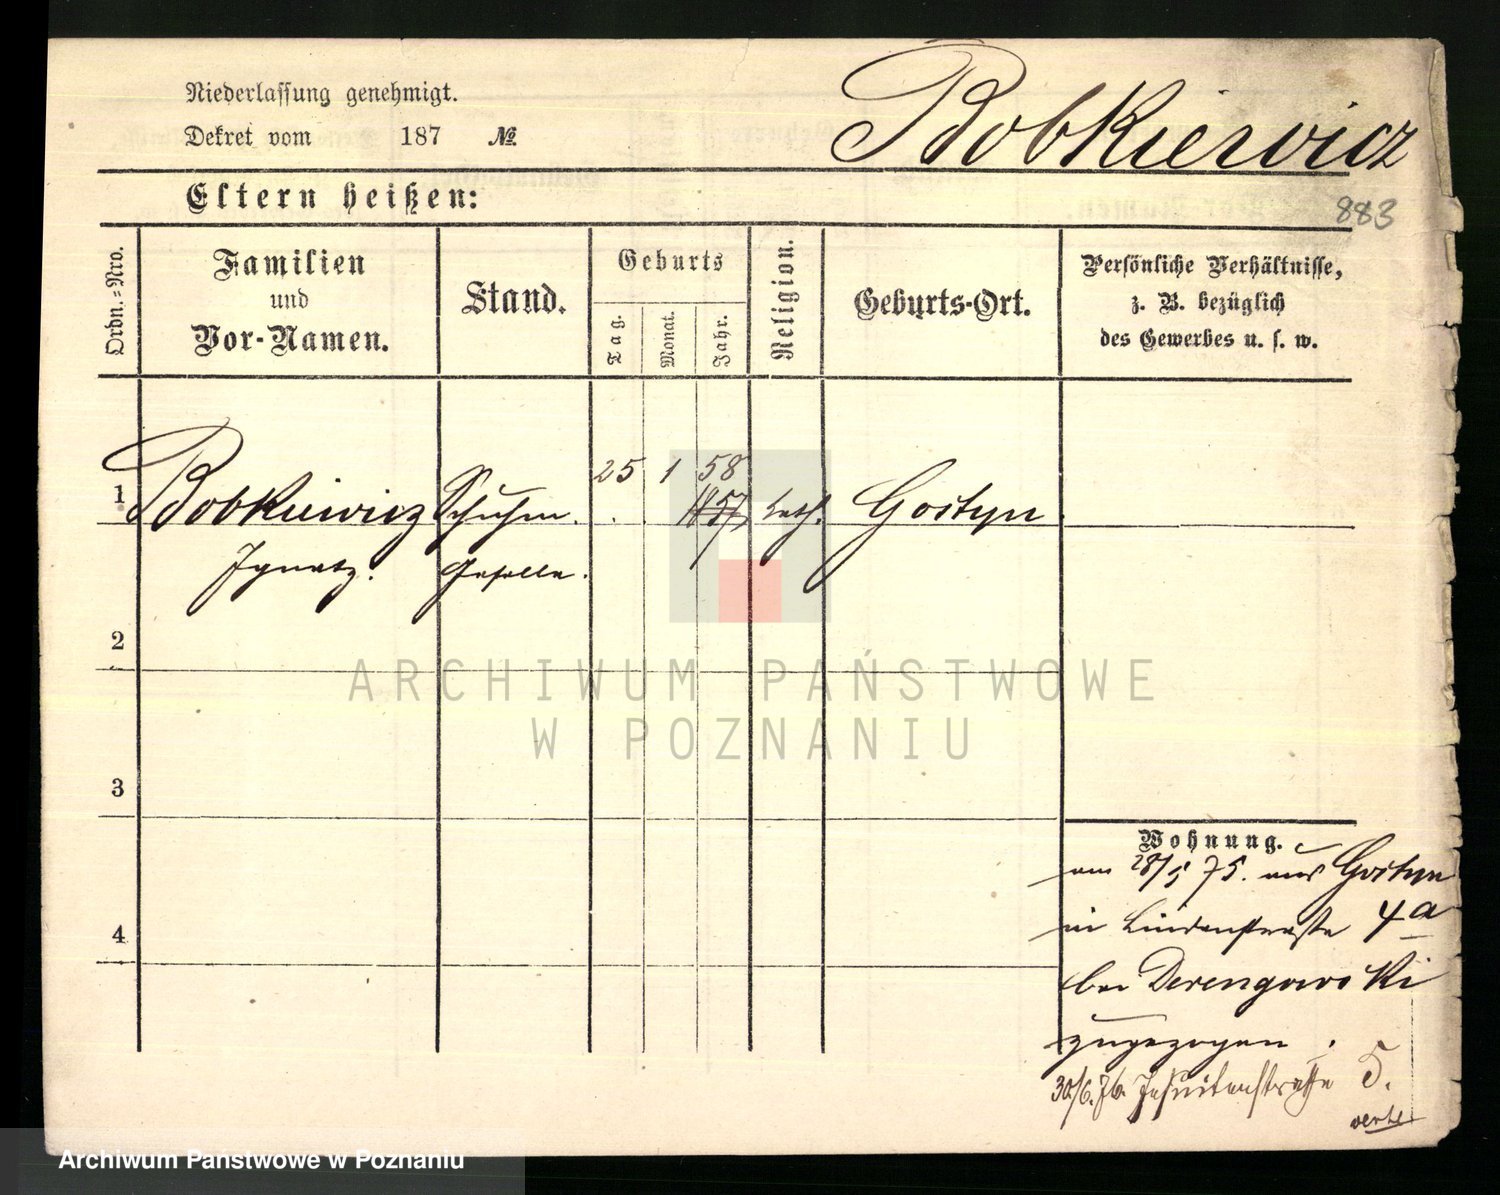 Niederlassung genehmigt.
Dekret vom 187 №
Bobkiewicz
Eltern heißen:
883
Ordn.=Nro.
Familien
und
Vor-Namen.
Stand.
Geburts
Tag.
Monat.
Jahr.
Religion.
Geburts-Ort.
Persönliche Verhältnisse,
z. B. bezüglich
des Gewerbes u. s. w.
25 1 58
1 Bobkiewicz Schuhm. 1857 kath. Gostyn
Ignatz. Geselle.
2
3
4
Wohnung.
am 28/5 75. aus Gostyn
in Lindenstraße 4a
bei Derengowski
zugezogen.
30/6. 76. Jesuitenstraße 5.
verte
ARCHIWUM PAŃSTWOWE
W POZNANIU
Archiwum Państwowe w Poznaniu